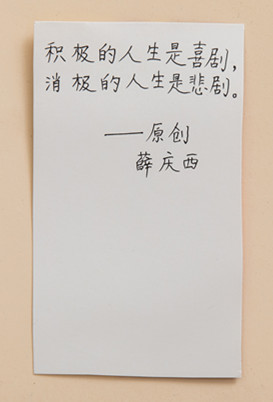 积极的人生是喜剧，
消极的人生是悲剧。
——原创
薛庆西